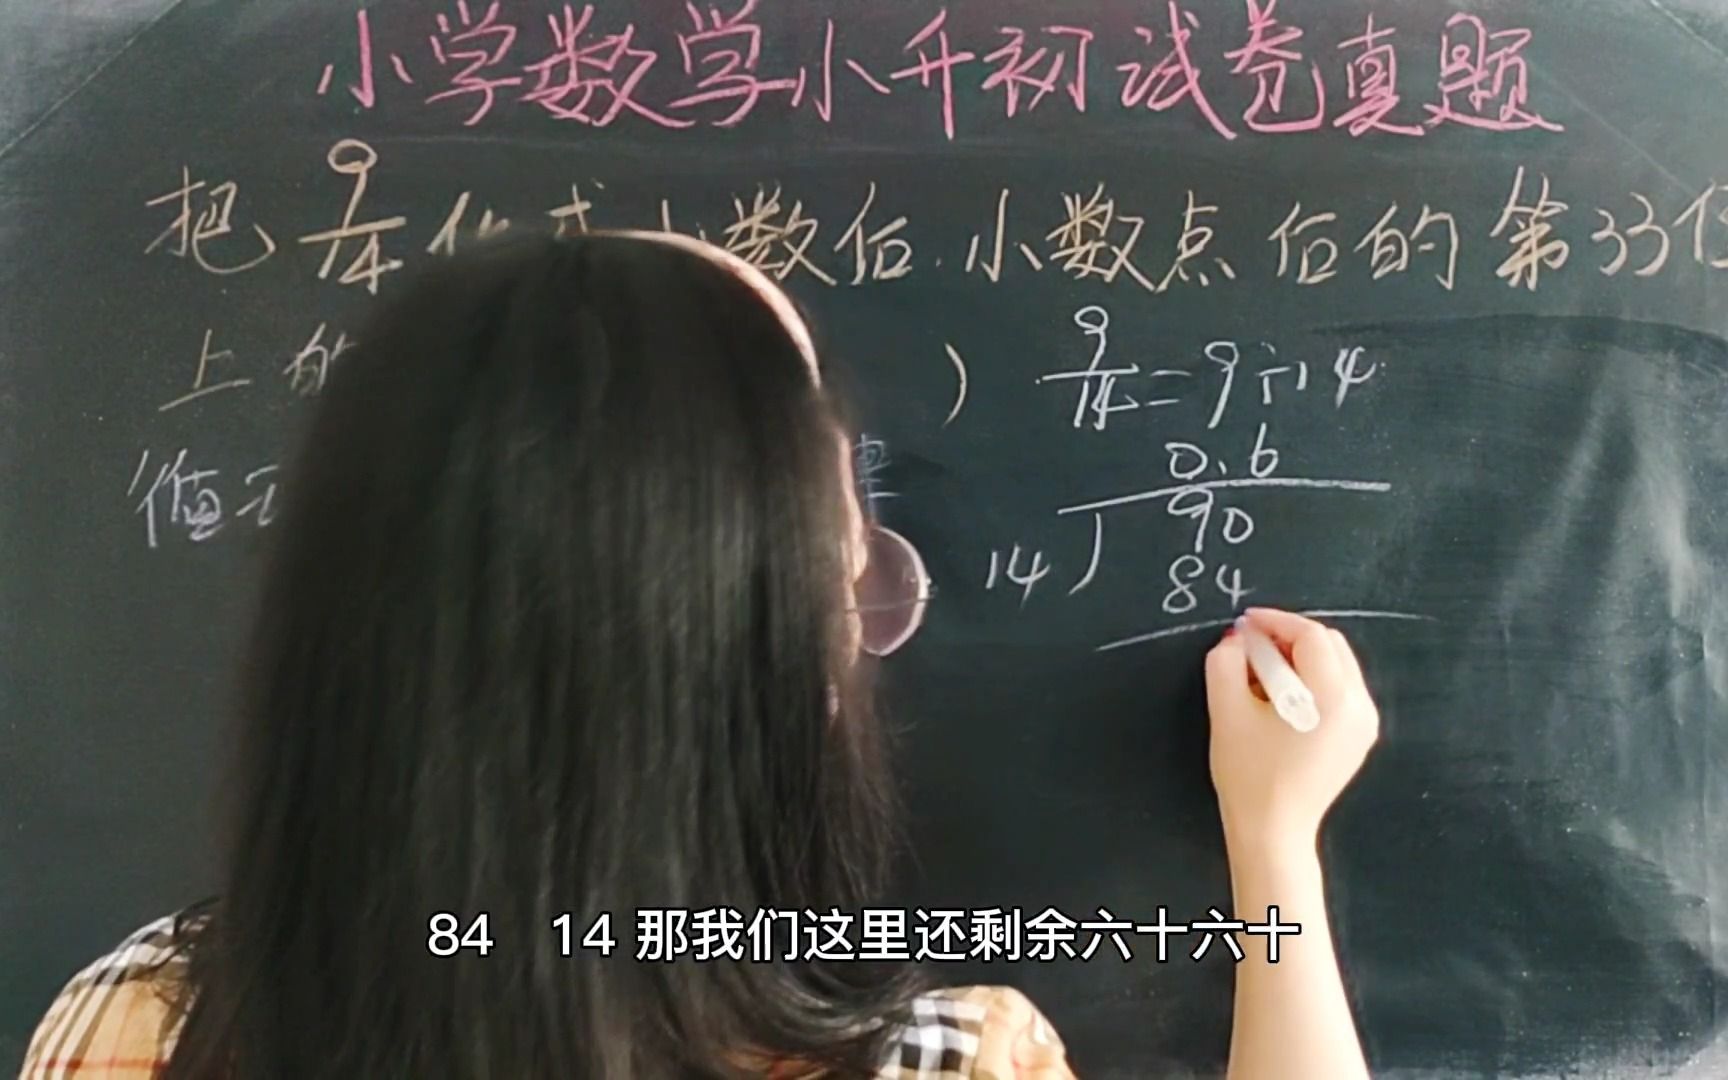 小学数学小升初试卷真题
把 9/14 化成小数后.小数点后的第33位
上的 )
9/14=9÷14
0.6
14 90
84
循
84 14 那我们这里还剩余六十六十